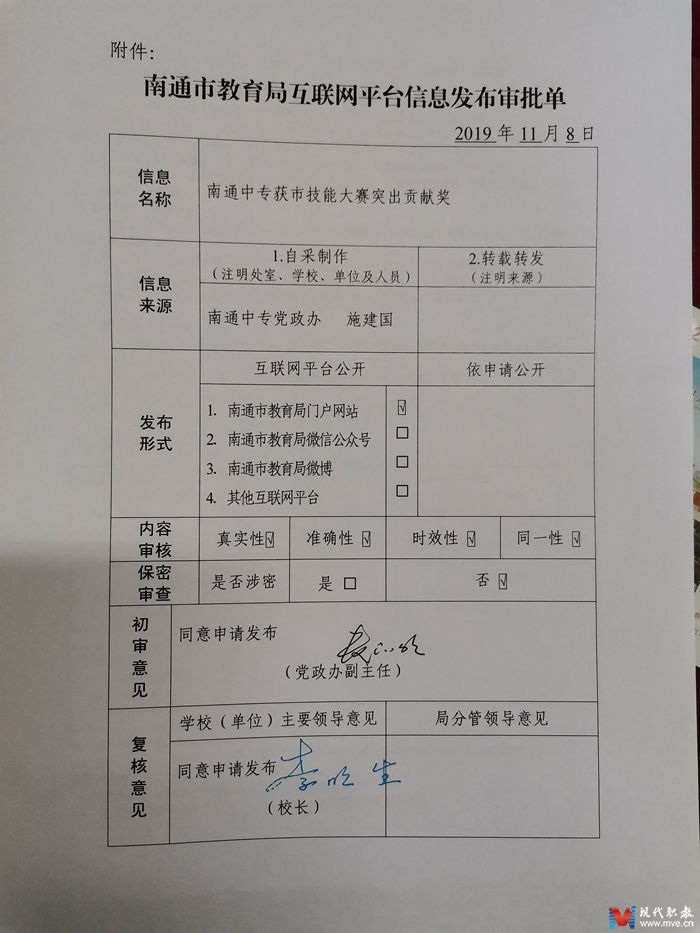 附件：
南通市教育局互联网平台信息发布审批单
2019 年 11 月 8 日
信息名称
南通中专获市技能大赛突出贡献奖
信息来源
1.自采制作
（注明处室、学校、单位及人员）
2.转载转发
（注明来源）
南通中专党政办 施建国
发布形式
互联网平台公开
依申请公开
1. 南通市教育局门户网站 ☑
2. 南通市教育局微信公众号 □
3. 南通市教育局微博 □
4. 其他互联网平台 □
内容审核
真实性☑ 准确性 ☑ 时效性 ☑ 同一性 ☑
保密审查
是否涉密 是 □ 否 ☑
初审意见
同意申请发布
（党政办副主任）
复核意见
学校（单位）主要领导意见
局分管领导意见
同意申请发布
（校长）
现代职教
www.mve.cn